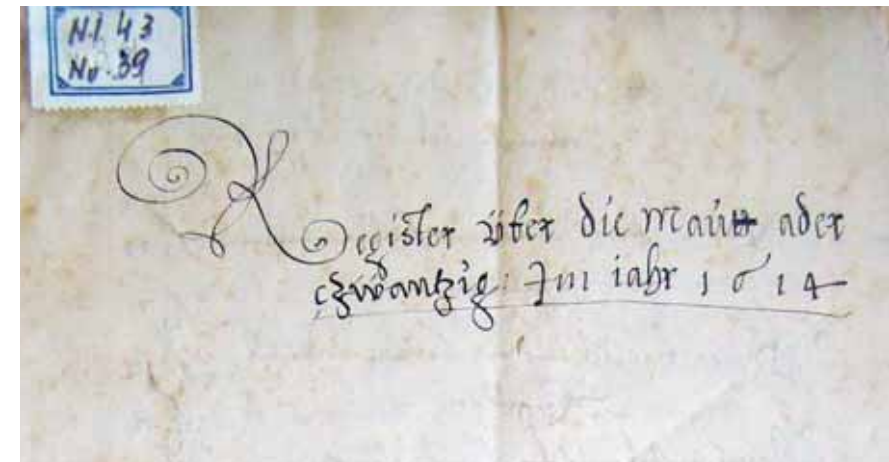 N.I. 43
Nv. 39
Register über die Mautt ader
czwantzig: Im iahr 1614